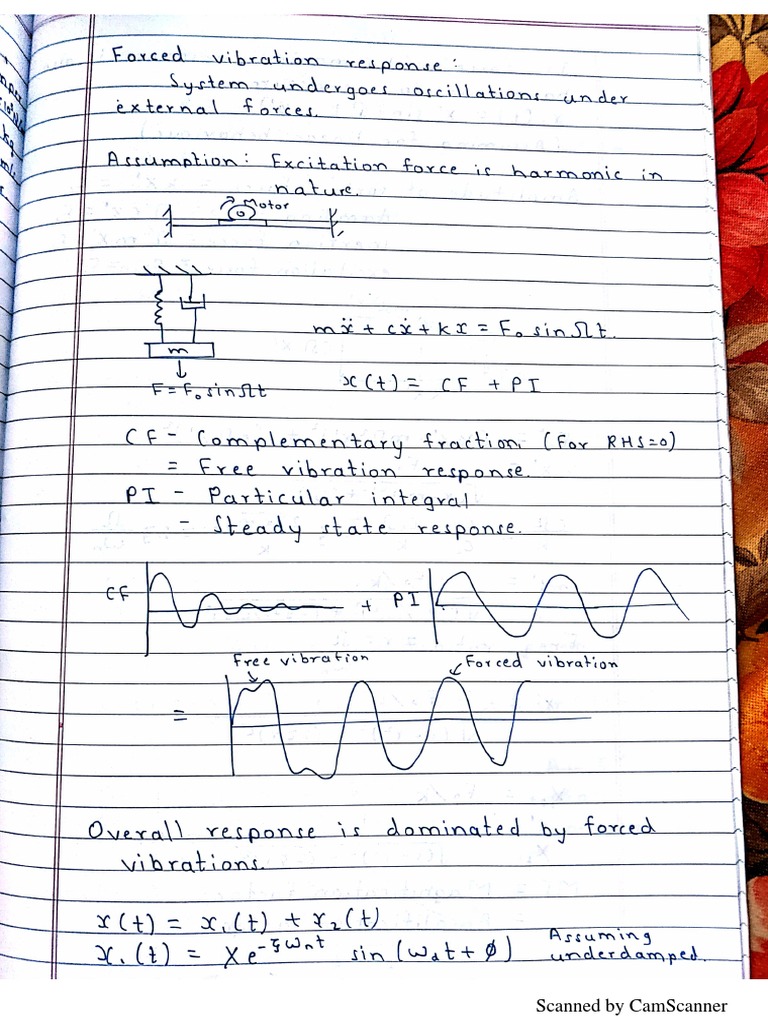 Forced vibration response:
System undergoes oscillations under
external forces.
Assumption: Excitation force is harmonic in
nature.
Motor
mẍ + cẋ + kx = F₀ sinΩt.
m
F = F₀ sinΩt
x(t) = CF + PI
CF - Complementary fraction (For RHS=0)
= Free vibration response.
PI - Particular integral
- Steady state response.
CF + PI
Free vibration
Forced vibration
=
Overall response is dominated by forced
vibrations.
x(t) = x₁(t) + x₂(t)
x₁(t) = Xe^-ξωnt sin(ωdt + ϕ) Assuming
underdamped.
Scanned by CamScanner